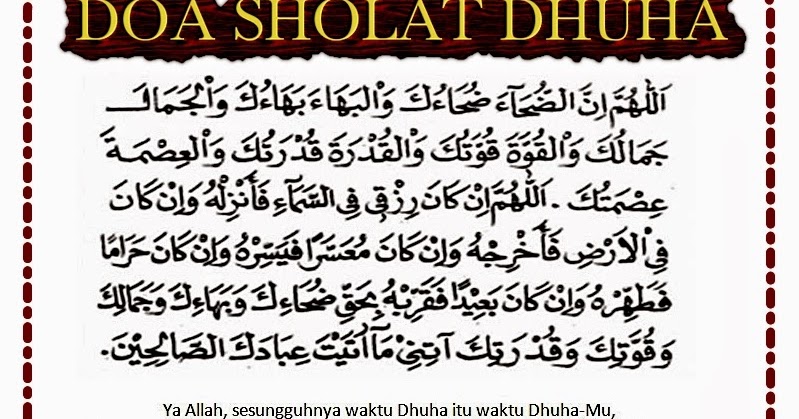 DOA SHOLAT DHUHA
اَللّٰهُمَّ اِنَّ الضُّحَآءَ ضُحَاءُكَ وَالْبَهَاءَ بَهَاءُكَ وَالْجَمَالَ
جَمَالُكَ وَالْقُوَّةَ قُوَّتُكَ وَالْقُدْرَةَ قُدْرَتُكَ وَالْعِصْمَةَ
عِصْمَتُكَ . اَللّٰهُمَّ اِنْ كَانَ رِزْقِى فِى السَّمَآءِ فَأَنْزِلْهُ وَاِنْ كَانَ
فِى اْلاَرْضِ فَأَخْرِجْهُ وَاِنْ كَانَ مُعَسَّرًا فَيَسِّرْهُ وَاِنْ كَانَ حَرَامًا
فَطَهِّرْهُ وَاِنْ كَانَ بَعِيْدًا فَقَرِّبْهُ بِحَقِّ ضُحَاءِكَ وَبَهَاءِكَ وَجَمَالِكَ
وَقُوَّتِكَ وَقُدْرَتِكَ آتِنِيْ مَآ اَتَيْتَ عِبَادَكَ الصَّالِحِيْنَ .
Ya Allah, sesungguhnya waktu Dhuha itu waktu Dhuha-Mu,